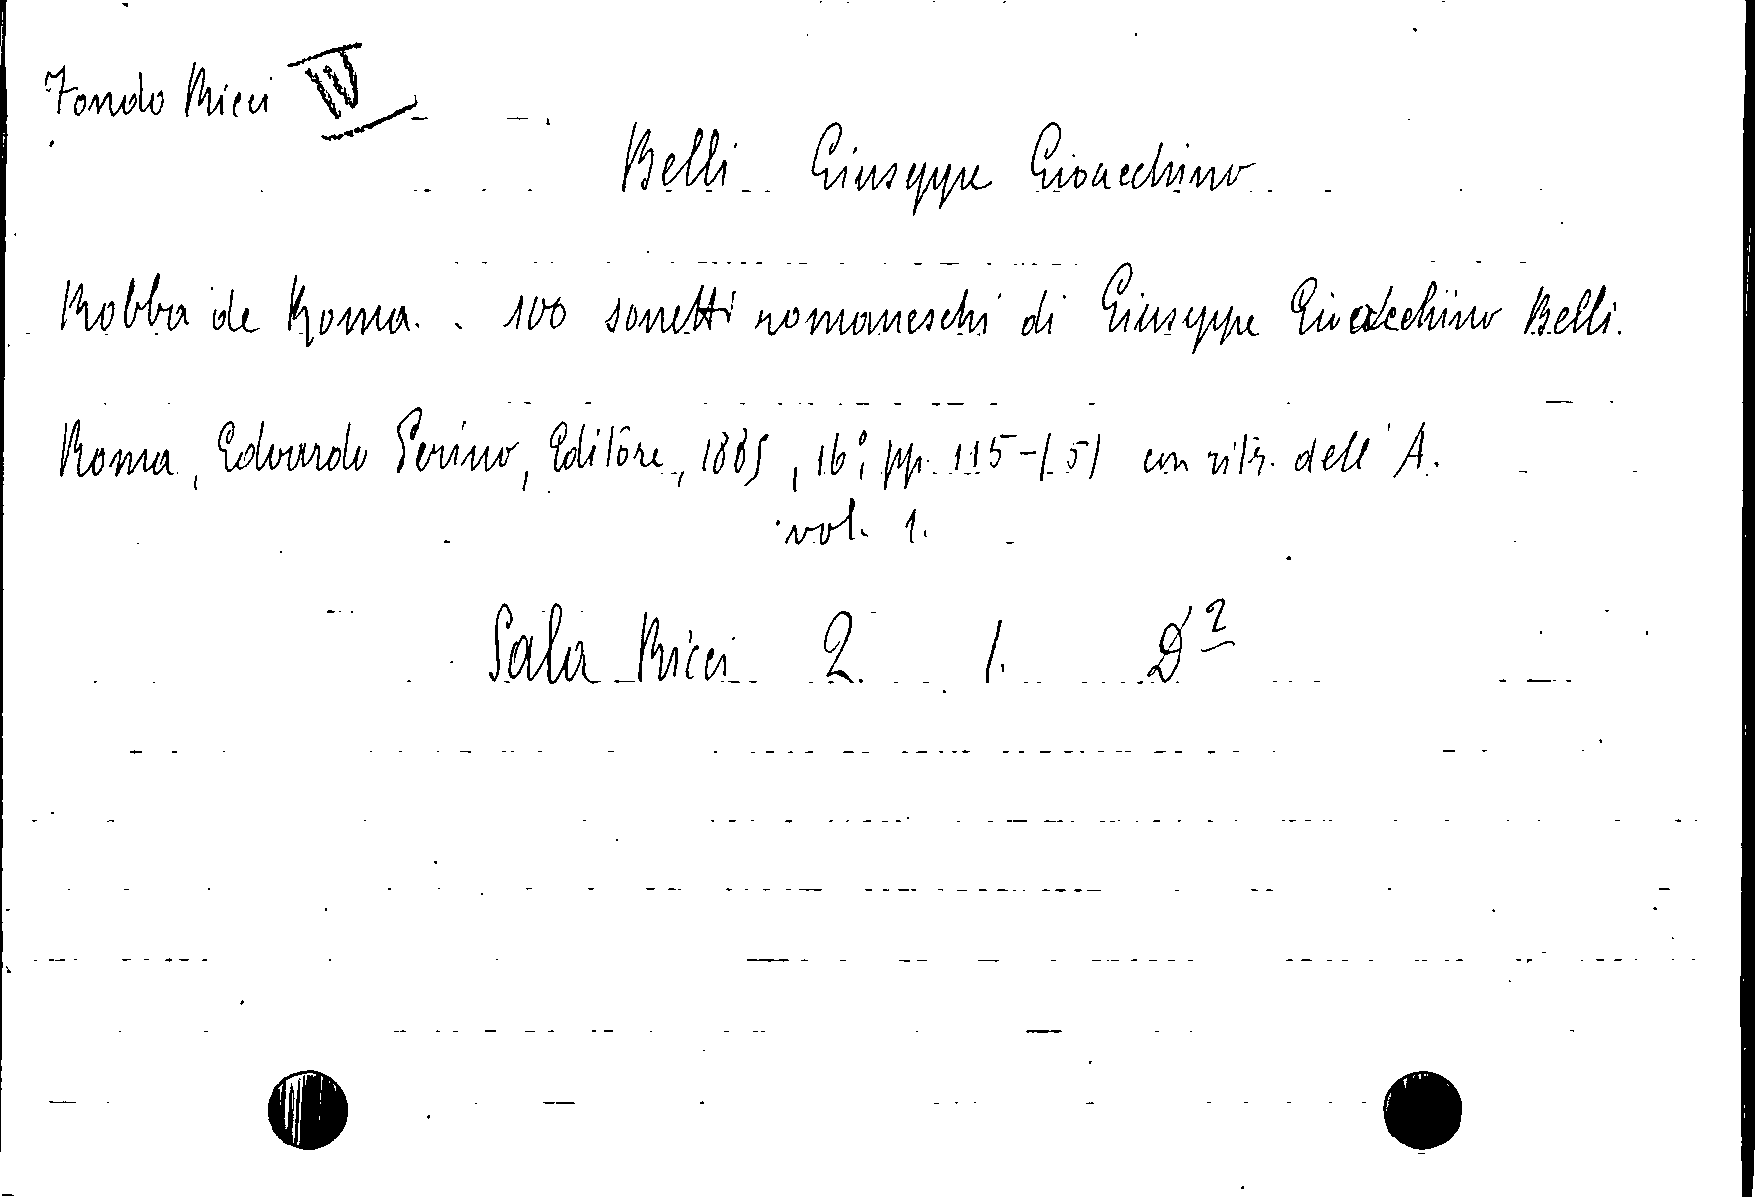 Fondo Ricci IV
Belli Giuseppe Gioacchino
Robba de Roma. . 100 sonetti romaneschi di Giuseppe Gioacchino Belli.
Roma, Edoardo Perino, Editore, 1885, 16°, pp. 115-(5) con ritr. dell'A.
vol. 1.
Sala Ricci 2. 1. D 2